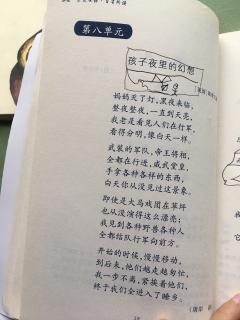 第八单元
孩子夜里的幻想
妈妈灭了灯，黑夜来临，
整夜整夜，一直到天亮，
我老是看见人们在行军，
看得分明，像白天一样。
武装的军队，帝王将相，
全都在行进，威武堂皇，
手拿各种各样的东西，
白天你从没见过这景象。
即使是大马戏团在草坪
也从没演得这么漂亮；
我见到各种野兽各种人
全都结队行军向前方。
开始的时候，慢慢移动，
到后来，他们越走越匆忙，
我一步不离，紧挨着他们，
终于我们全进入了睡乡。